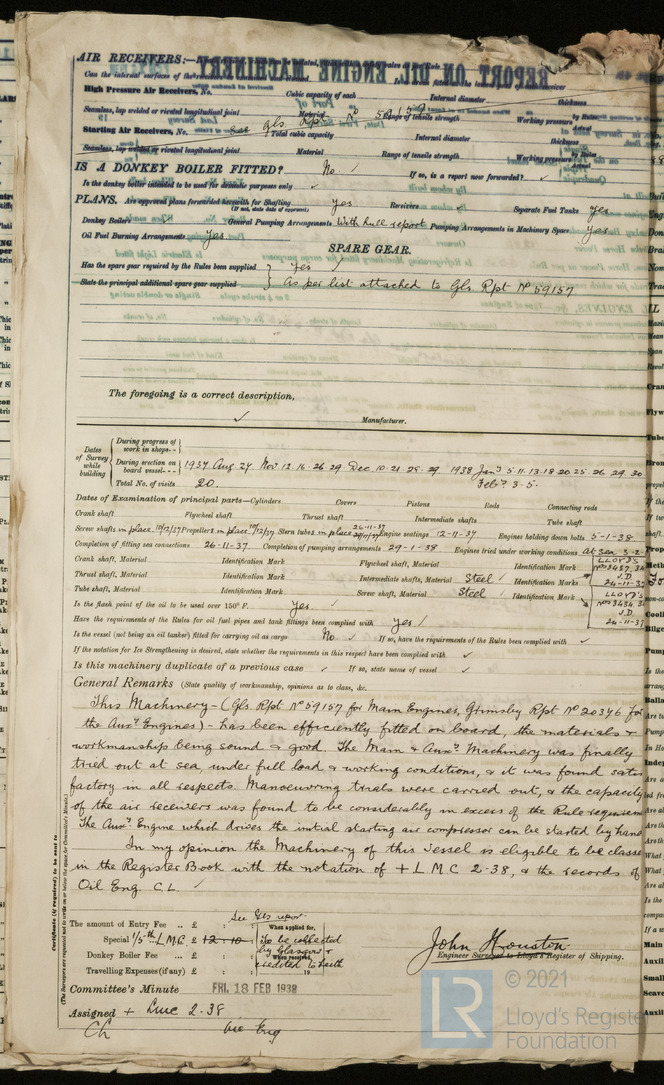 AIR RECEIVERS:—
Can the internal surfaces of the
High Pressure Air Receivers, No. Cubic capacity of each Internal diameter thickness
Seamless, lap welded or riveted longitudinal joint Material Range of tensile strength Working pressure by Rules
Starting Air Receivers, No. See Gls Rpt No 59157 Total cubic capacity Internal diameter thickness
Seamless, lap welded or riveted longitudinal joint Material Range of tensile strength Working pressure by Rules
IS A DONKEY BOILER FITTED? No ✓ If so, is a report now forwarded? ✓
Is the donkey boiler intended to be used for domestic purposes only ✓
PLANS. Are approved plans forwarded herewith for Shafting yes Receivers ✓ Separate Fuel Tanks yes
(If not, state date of approval)
Donkey Boilers General Pumping Arrangements With hull report Pumping Arrangements in Machinery Space yes
Oil Fuel Burning Arrangements yes
SPARE GEAR.
Has the spare gear required by the Rules been supplied yes ✓
State the principal additional spare gear supplied As per list attached to Gls Rpt No 59157
The foregoing is a correct description,
✓ Manufacturer.
Dates of Survey while building
During progress of work in shops--
During erection on board vessel--- 1937 Aug 27 Nov 12 16 26 29 Dec 10 21 28 29 1938 Jany 5 11 13 18 20 25 26 29 30
Total No. of visits 20 Feby 3. 5.
Dates of Examination of principal parts—Cylinders Covers Pistons Rods Connecting rods
Crank shaft Flywheel shaft Thrust shaft Intermediate shafts Tube shaft
Screw shafts in place 10/12/37 Propellers in place 10/12/37 Stern tubes in place 26-11-37 Engine seatings 12-11-37 Engines holding down bolts 5-1-38
Completion of fitting sea connections 26-11-37 Completion of pumping arrangements 29-1-38 Engines tried under working conditions At sea 3-2-
Crank shaft, Material Identification Mark Flywheel shaft, Material Identification Mark LLOYD'S
Thrust shaft, Material Identification Mark Intermediate shafts, Material Steel Identification Marks J.D. 24-11-37
Tube shaft, Material Identification Mark Screw shaft, Material Steel Identification Mark LLOYD'S J.D. 24-11-37
Is the flash point of the oil to be used over 150° F. yes ✓
Have the requirements of the Rules for oil fuel pipes and tank fittings been complied with yes ✓
Is the vessel (not being an oil tanker) fitted for carrying oil as cargo No ✓ If so, have the requirements of the Rules been complied with ✓
If the notation for Ice Strengthening is desired, state whether the requirements in this respect have been complied with ✓
Is this machinery duplicate of a previous case ✓ If so, state name of vessel ✓
General Remarks (State quality of workmanship, opinions as to class, &c.
This Machinery - (Gls Rpt No 59157 for Main Engines, Grimsby Rpt No 20346 for
the Auxy Engines) - has been efficiently fitted on board, the materials &
workmanship being sound & good. The Main & Auxy Machinery was finally
tried out at sea, under full load & working conditions, & it was found satis
factory in all respects. Manoeuvring trials were carried out, & the capacity
of the air receivers was found to be considerably in excess of the Rule requirem
The Auxy Engine which drives the initial starting air compressor can be started by hand
In my opinion the Machinery of this Vessel is eligible to be classe
in the Register Book with the notation of + L M C 2-38, & the records of
Oil Eng. C L. ✓
Certificate (if required) to be sent to
(The Surveyors are requested not to write on or below the space for Committee's Minute.)
See Gls report
The amount of Entry Fee .. £ : : When applied for,
Special 1/5th L M C £ 12 - 10 : To be collected by Glasgow &
Donkey Boiler Fee £ : : When received,
Travelling Expenses (if any) £ : : credited to Leith 19
John Houston
Engineer Surveyor to Lloyd's Register of Shipping.
Committee's Minute FRI. 18 FEB 1938
Assigned + Lmc 2.38
CL Oil Eng
LR
© 2021
Lloyd's Registe
Foundation